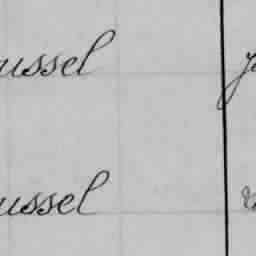 ussel
ussel